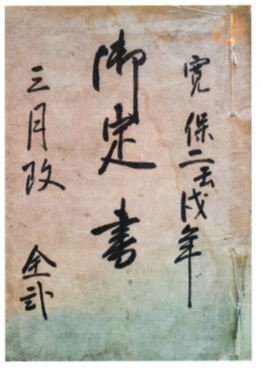 寛保二壬戌年
御定書
三月改 全